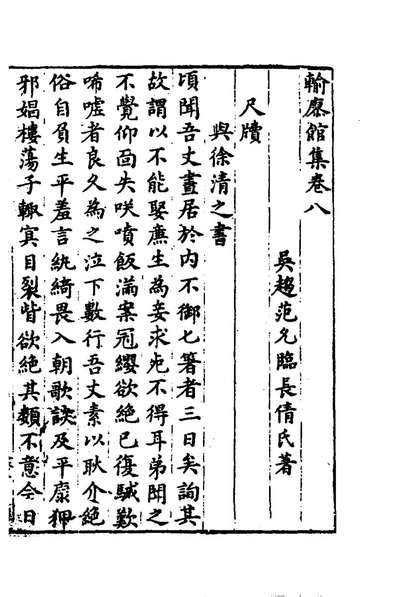 輸廖館集卷八
吳趨范允臨長倩氏著
尺牘
與徐清之書
頃聞吾丈晝居於内不御匕箸者三日矣詢其
故謂以不能娶廡生為妾求死不得耳弟聞之
不覺仰面失咲噴飯滿案冠纓欲絕已復駴歎
唏噓者良久為之泣下數行吾丈素以耿介絕
俗自負生平羞言紈綺畏入朝歌談及平康狎
邪娼樓蕩子輙寘目裂眥欲絕其類不意今日